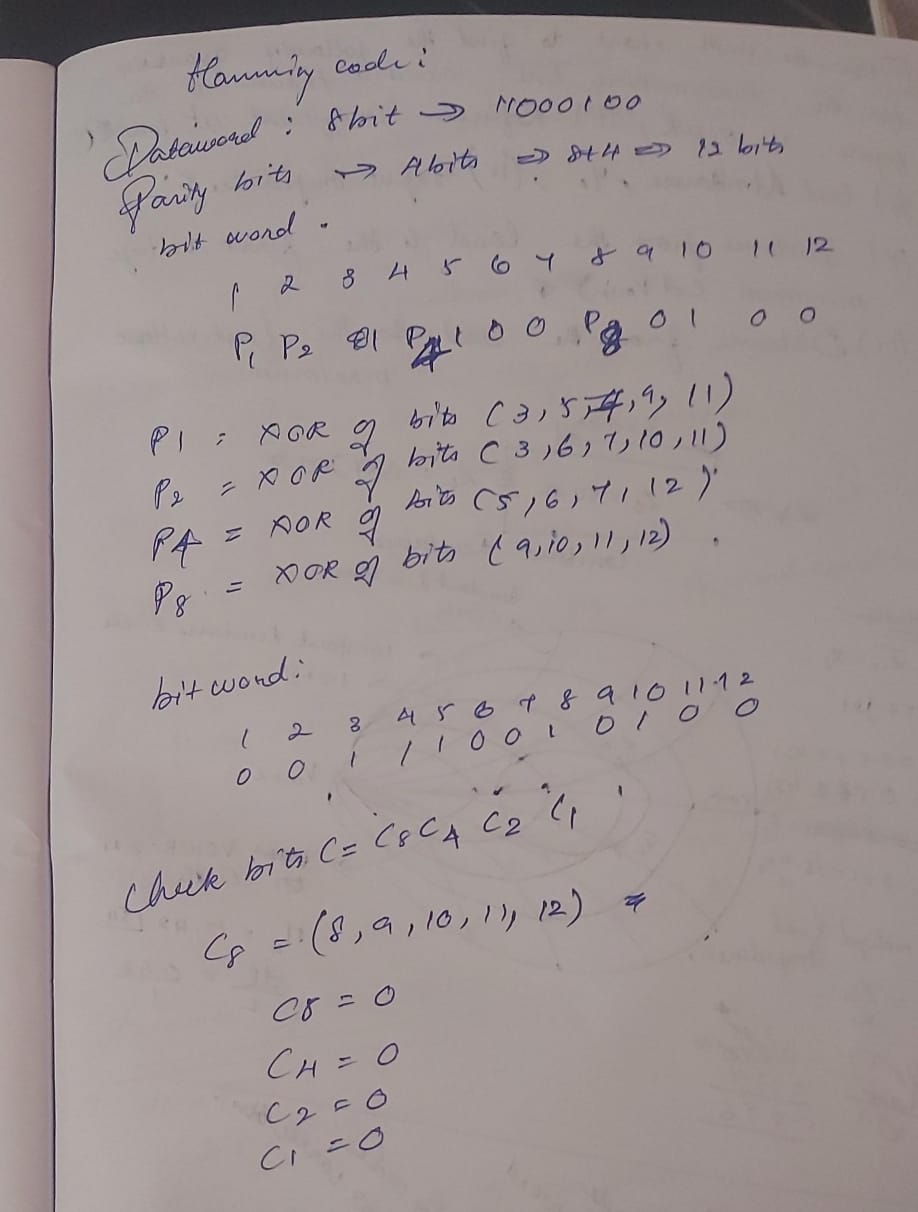 Hamming code:
Dataword : 8bit → 11000100
Parity bits → 4bits ⇒ 8+4 ⇒ 12 bits
bit word .
1 2 3 4 5 6 7 8 9 10 11 12
P1 P2 1 P4 1 0 0 P8 0 1 0 0
P1 = XOR of bits (3, 5, 7, 9, 11)
P2 = XOR of bits (3, 6, 7, 10, 11)
P4 = XOR of bits (5, 6, 7, 12)
P8 = XOR of bits (9, 10, 11, 12) .
bit word:
1 2 3 4 5 6 7 8 9 10 11 12
0 0 1 1 1 0 0 1 0 1 0 0
Check bits C = C8 C4 C2 C1
C8 = (8, 9, 10, 11, 12) =
C8 = 0
C4 = 0
C2 = 0
C1 = 0